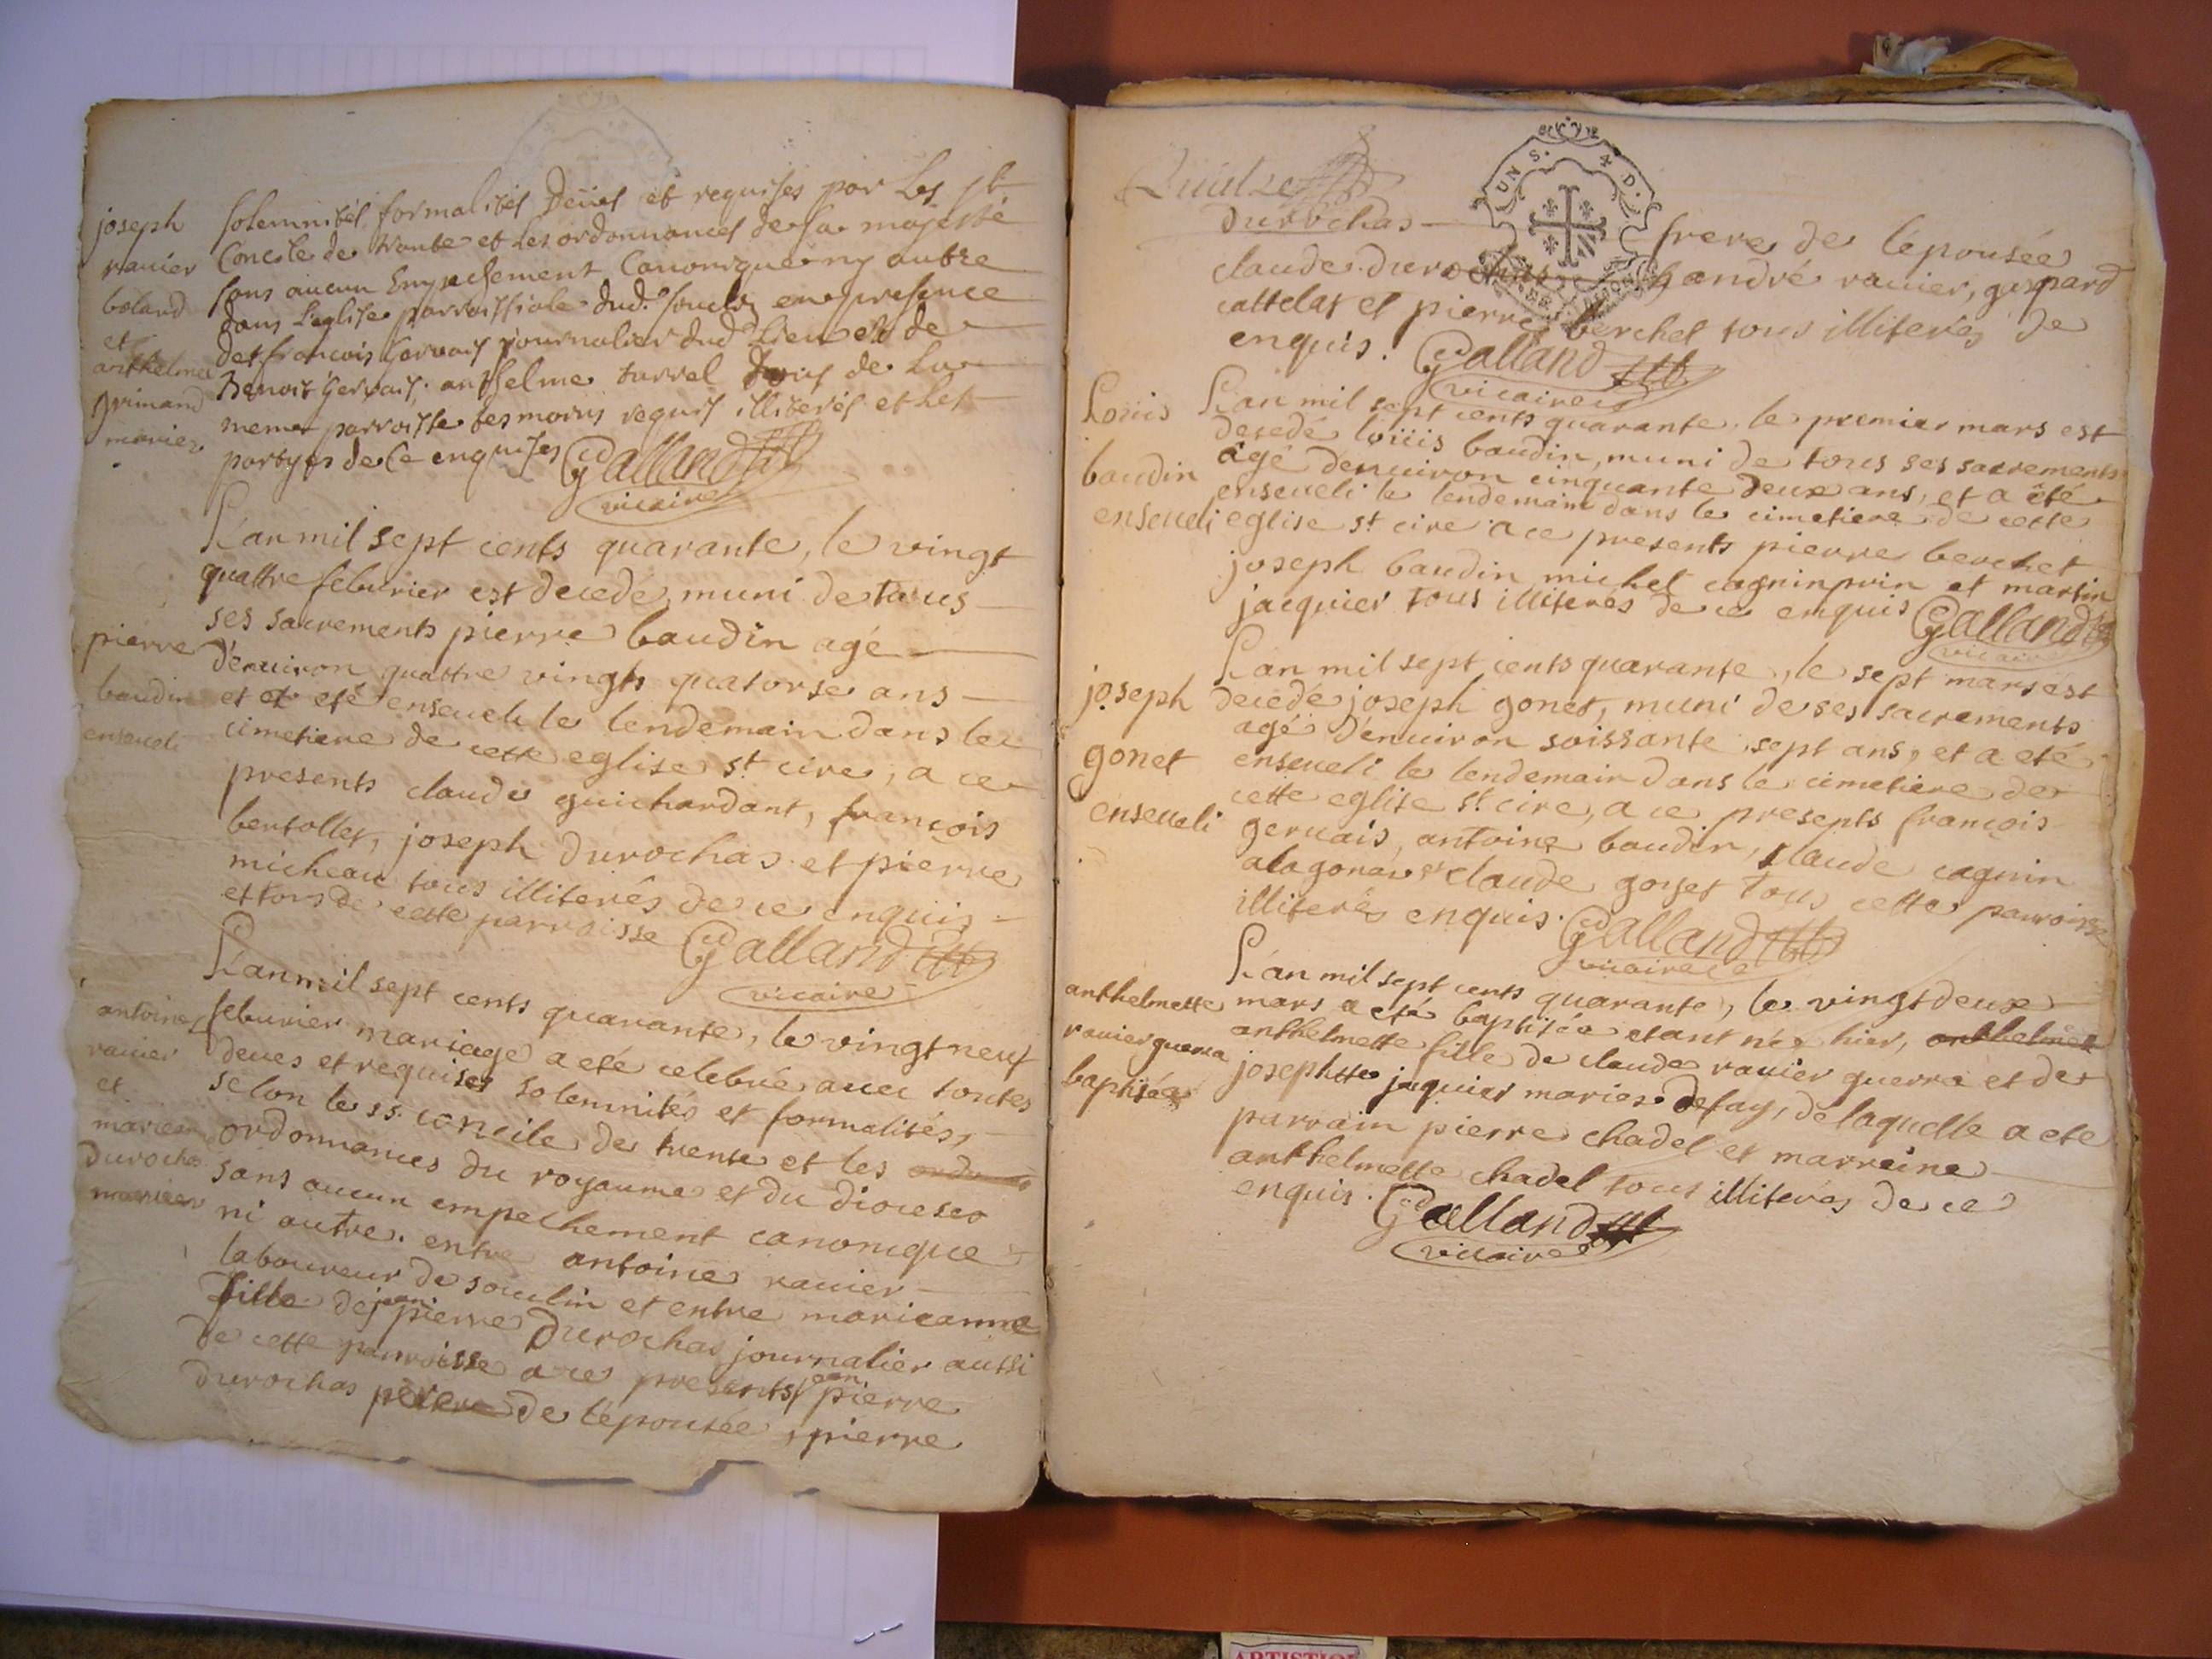 joseph
ravier
boland
et
anthelmee
grimand
mariez
solemnités formalités Deües et requises par Les st
Concile de trante et les ordonnances de sa majesté
sans aucun Empechement Canonique ny autre
dans Léglise parroissiale dud. soucln en presence
des françois Gervais journalier dud Lieu et de
Benoit Gervais anthelme turrel de La
meme parroisse tesmoins requis illiterés et les
partyes de Ce enquises Galland
vicaire
pierre
baudin
enseveli
L'an mil sept cents quarante, le vingt
quattre feburier est decedé, muni de tous
ses sacrements pierre baudin agé
d'enuiron quattre vingts quatorse ans
et a eté enseueli le lendemain dans le
cimetiere de cette eglise st cire, a ce
presents claude guichardant, françois
bertollet, joseph durochas et pierre
micheau tous illiterés de ce enquis
et tous de cette parroisse Galland
vicaire
antoine
ravier
et
marieanne
durochas
mariez
L'an mil sept cents quarante, le vingt neuf
feburier mariage a eté celebré auec toutes
deues et requises solemnités et formalités,
selon le ss. concile de trente et les
ordonnances du royaume et du diocese
sans aucun empechement canonique
ni autre. entre antoine rauier
laboureur de souclin et entre marieanne
fille de jean pierre Durochas journalier aussi
de cette parroisse a ce presents jean pierre
durochas pere de l'épousée, pierre
Quinze
durochas frere de l'épousée
claude durochas andré rauier, gaspard
cattelas et pierre berchet tous illiterés de
enquis. Galland
vicaire
UN S. 4 D.
Loüis
baudin
enseueli
L'an mil sept cents quarante. le premier mars est
decedé loüis baudin, muni de tous ses sacrements
âgé denuiron cinquante deux ans, et a été
enseueli le lendemain dans le cimetiere de cette
eglise st cire a ce presents pierre berchet
joseph baudin michel cagnin prin et martin
jacquier tous illiterés de ce enquis Galland
vicaire
joseph
gonet
enseueli
L'an mil sept cents quarante, le sept mars est
decedé joseph gonet, muni de ses sacrements
agé d'enuiron soissante sept ans, et a eté
enseueli le lendemain dans le cimetiere de
cette eglise st cire, a ce presents françois
geruais, antoine baudin, claude cagnin
claude gonet tous cette parroisse
illiterés enquis. Galland
vicaire
anthelmette
rauier guerra
baptisée
L'an mil sept cents quarante, le vingt deux
mars a eté baptisée etant née hier, anthelmette
anthelmette fille de claude rauier guerra et de
josephtte jaquier mariés defay, de laquelle a eté
parrain pierre chadel et marreine
anthelmette chadel tous illiterés de ce
enquis. Galland
vicaire